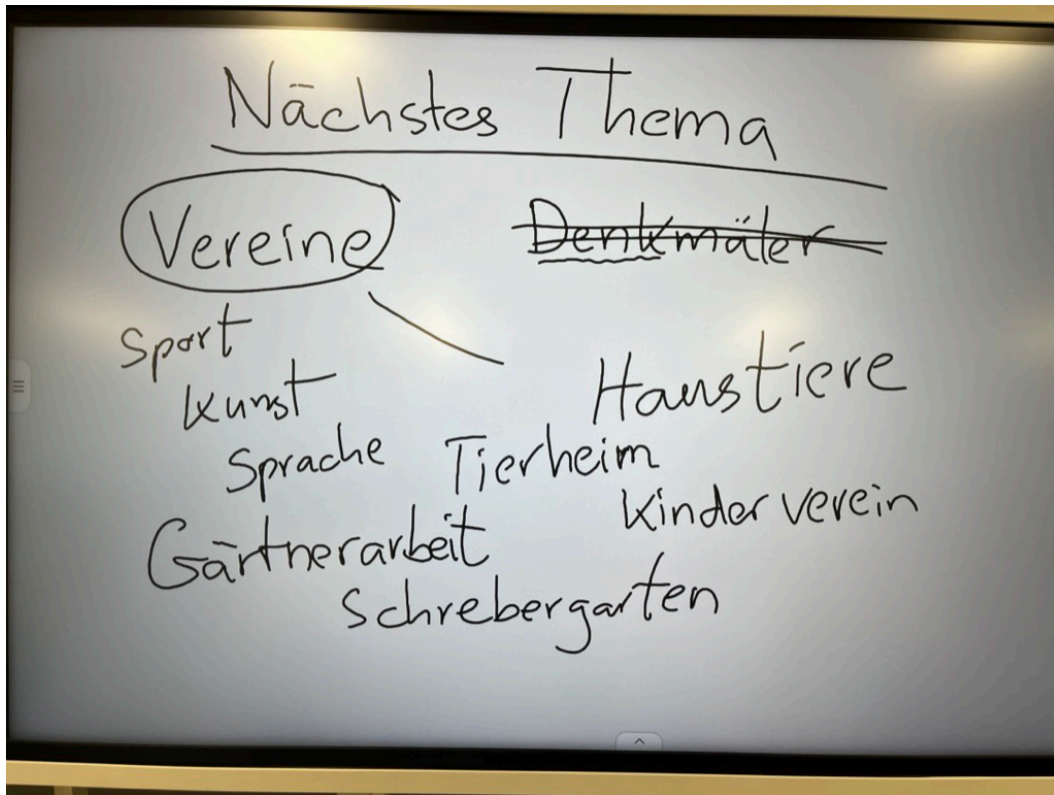 Nächstes Thema
Vereine Denkmäler
Sport
Haustiere
Kunst
Sprache Tierheim
Kinderverein
Gärtnerarbeit
Schrebergarten